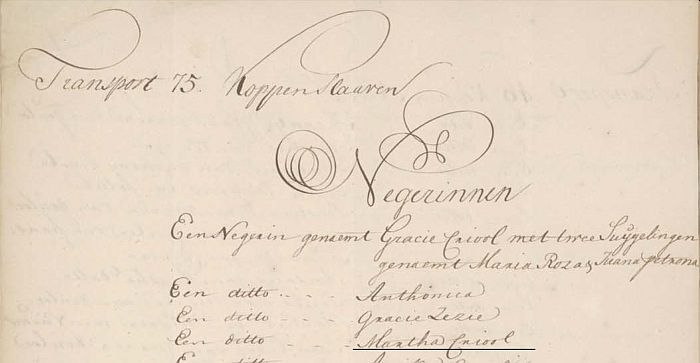 Transport 75. Koppen Slaaven
Negerinnen
Een Negerin genaemt Gracie Criool met twee Suijgelingen
genaemt Maria Roza & Juana petrona
Een ditto . . . . Anthonica
Een ditto . . . . Gracie Zezie
Een ditto . . . . Martha Criool
Een ditto